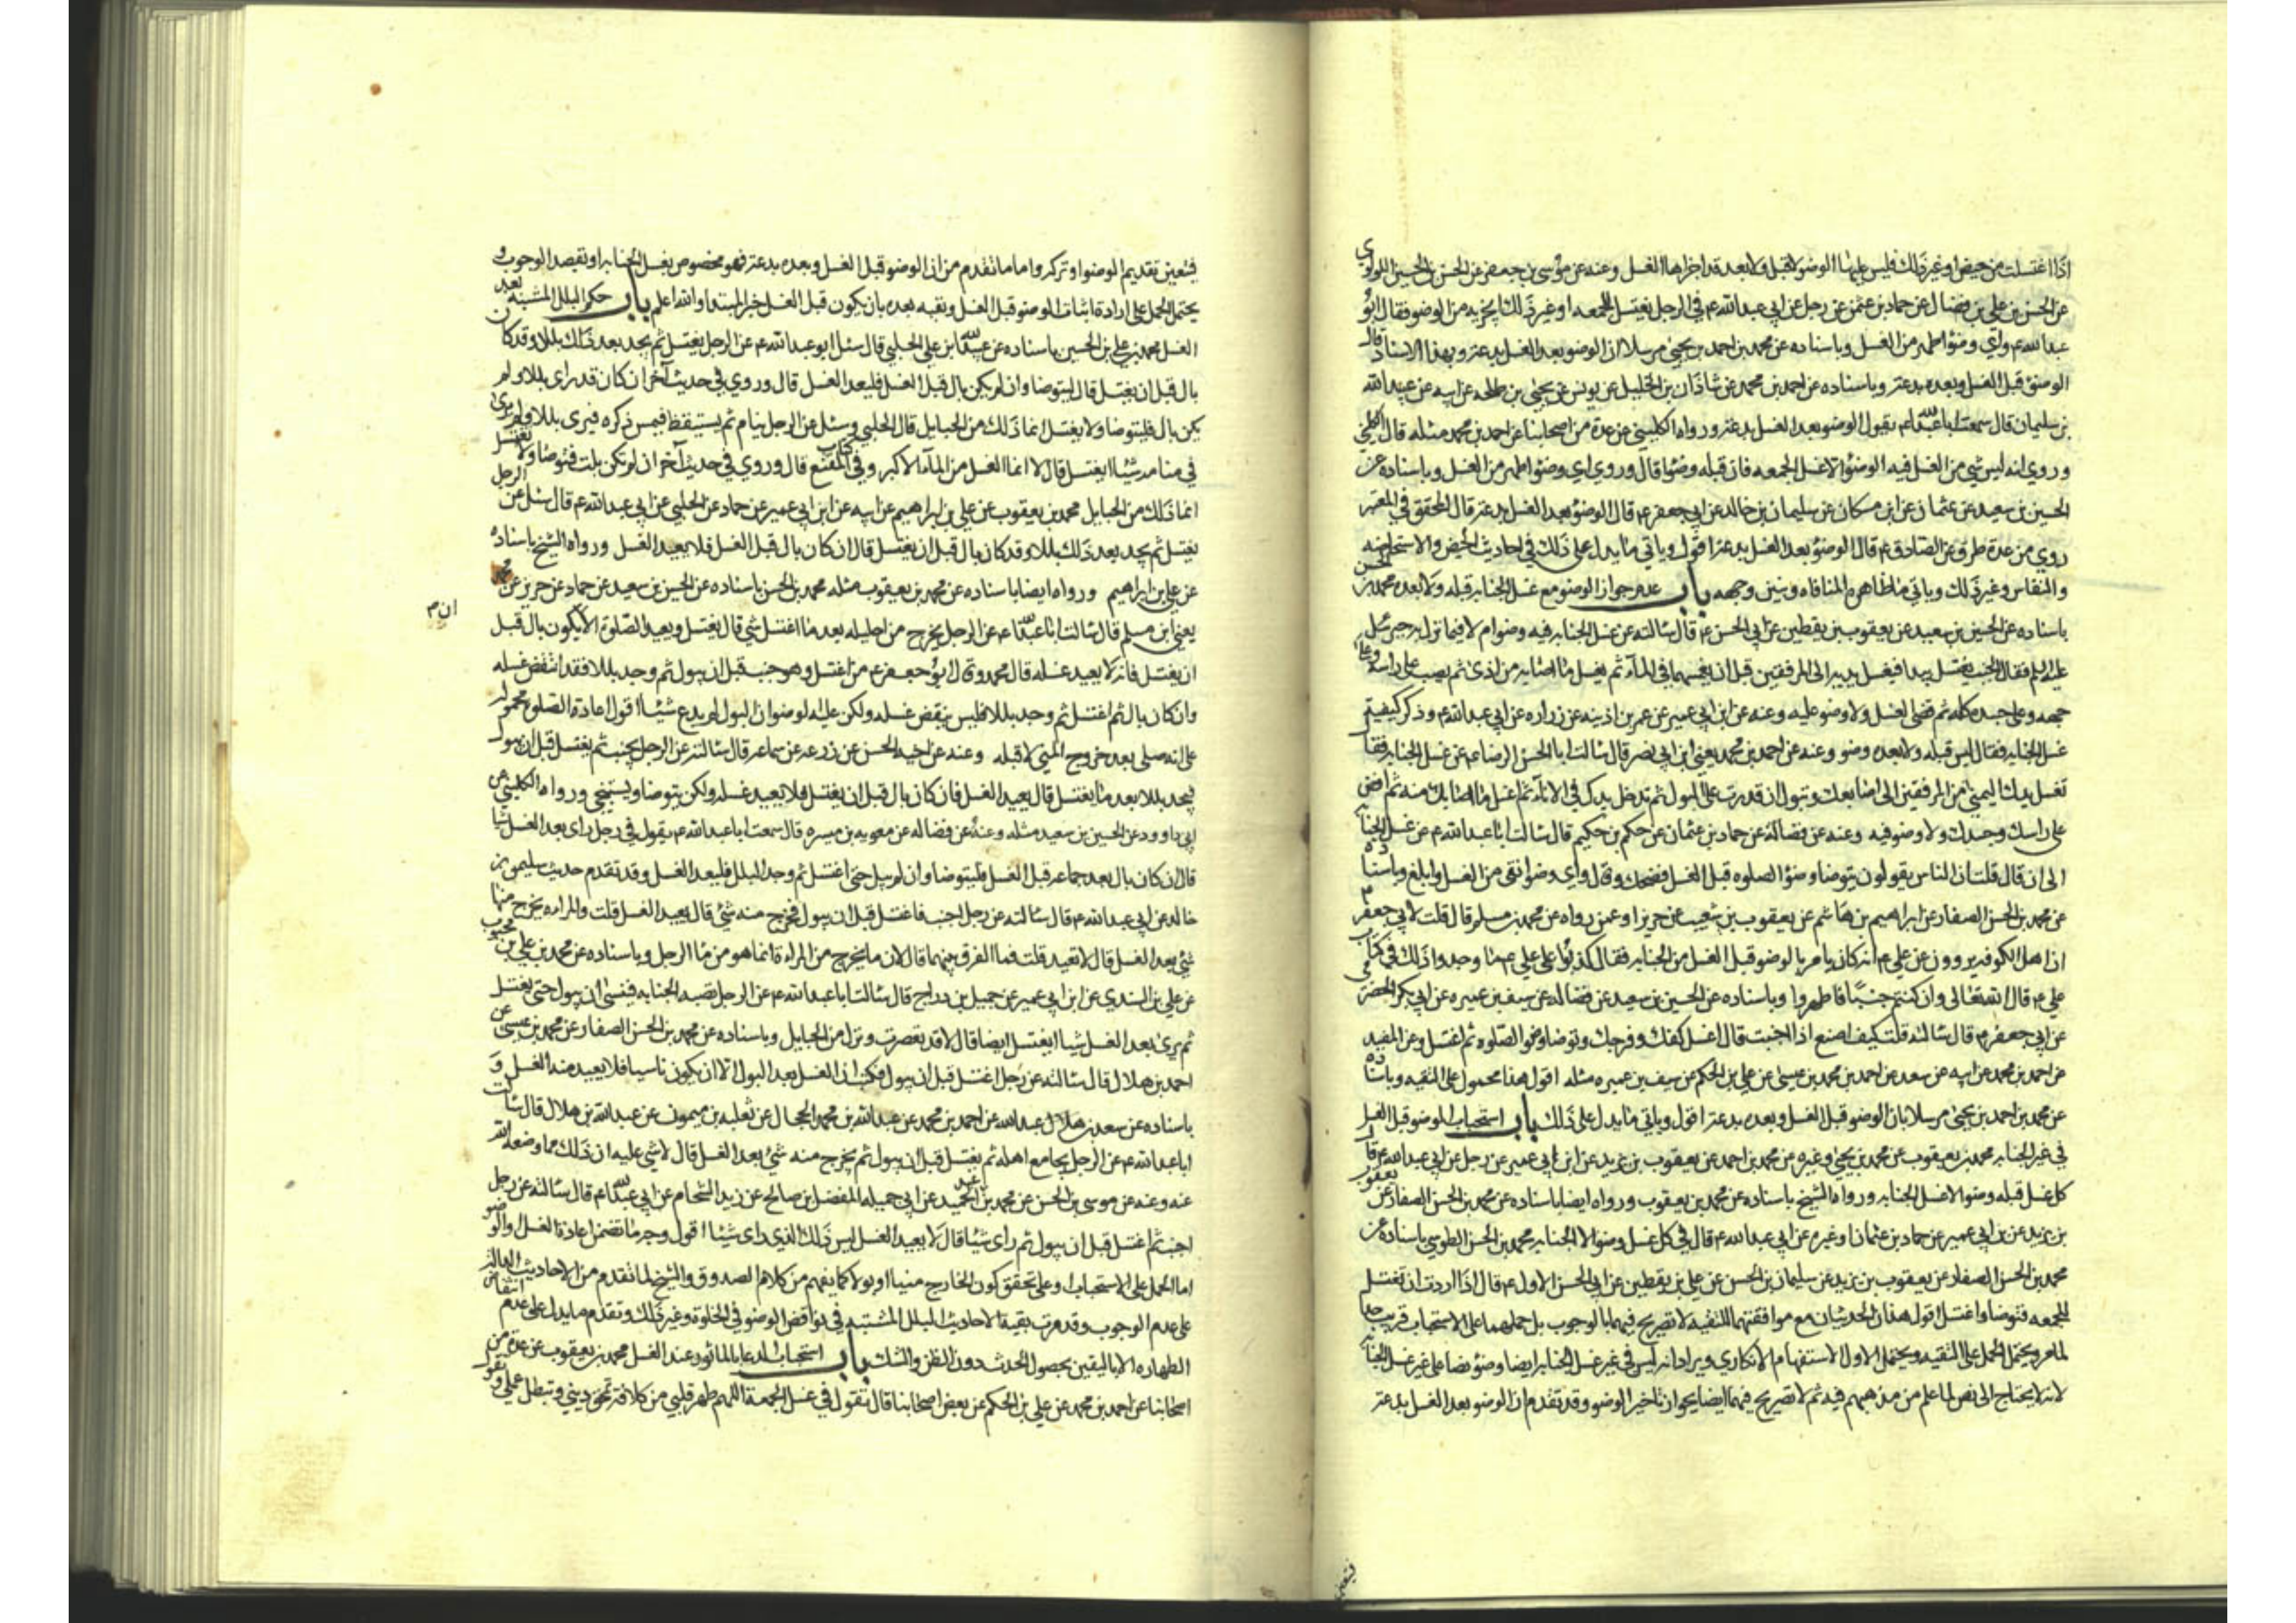 اذا اغتسلت من حيض او غير ذلك فليس عليها الوضوء لا قبل ولا بعد قد اجزاها الغسل وعنه عن موسى بن جعفر عن الحسن بن الحسين اللولوي
عن الحسن بن علي بن فضال عن حماد بن عثمن عن رجل عن ابي عبدالله ع في الرجل يغتسل للجمعه او غير ذلك ايجزيه من الوضو فقال ابو
عبدالله ع واي وضوء اطهر من الغسل وباسناده عن محمد بن احمد بن يحيى مرسلا ان الوضو بعد الغسل بدعة وبهذا الاسناد قال
الوضوء قبل الغسل وبعده بدعة وباسناده عن احمد بن محمد عن شاذان بن الخليل عن يونس عن يحيى بن طلحه عن ابيه عن عبدالله
بن سليمان قال سمعت ابا عبدالله ع يقول الوضو بعد الغسل بدعة ورواه الكليني عن عدة من اصحابنا عن احمد بن محمد مثله قال الكليني
وروي انه ليس شي من الغسل فيه الوضوء الا غسل الجمعه فان قبله وضوءا قال وروي اي وضوء اطهر من الغسل وباسناده عن
الحسين بن سعيد عن عثمان عن ابن مسكان عن سليمان بن خالد عن ابي جعفر ع قال الوضوء بعد الغسل بدعة قال المحقق في المعتبر
روي من عدة طرق عن الصادق ع قال الوضوء بعد الغسل بدعة اقول وياتي ما يدل على ذلك في احاديث الحيض والاستحاضه
والنفاس وغير ذلك وياتي ما ظاهره المنافاه ونبين وجهه باب عدم جواز الوضو مع غسل الجنابه قبله ولا بعده محمد بن الحسن
باسناده عن الحسين بن سعيد عن يعقوب بن يقطين عن ابي الحسن ع قال سالته عن غسل الجنابه فيه وضو ام لا فيما نزل به جبرئيل
عليه السلم فقال الجنب يغتسل يبدا فيغسل يديه الى المرفقين قبل ان يغمسهما في الماء ثم يغسل ما اصابه من اذى ثم يصب على راسه وعلى
وجهه وعلى جسده كله ثم قضى الغسل ولا وضو عليه وعنه عن ابن ابي عمير عن عمر بن اذينه عن زراره عن ابي عبدالله ع وذكر كيفية
غسل الجنابه فقال ليس قبله ولا بعده وضو وعنه عن احمد بن محمد يعني ابن ابي نصر قال سالت ابا الحسن الرضا ع عن غسل الجنابه فقال
تغسل يدك اليمنى من المرفقين الى اصابعك وتبول ان قدرت على البول ثم تدخل يدك في الاناء ثم اغسل ما اصابك منه ثم افض
على راسك وجسدك ولا وضو فيه وعنه عن فضالة عن حماد بن عثمان عن حكم بن حكيم قال سالت ابا عبدالله ع عن غسل الجنابه
الى ان قال قلت ان الناس يقولون يتوضا وضوء الصلوه قبل الغسل فضحك وقال واي وضو انقى من الغسل وابلغ وباسناده
عن محمد بن الحسن الصفار عن ابراهيم بن هاشم عن يعقوب بن شعيب عن حريز او عمن رواه عن محمد بن مسلم قال قلت لابي جعفر ع
ان اهل الكوفه يروون عن علي ع انه كان يامر بالوضو قبل الغسل من الجنابه فقال كذبوا على علي ع ما وجدوا ذلك في كتاب
علي ع قال الله تعالى وان كنتم جنبا فاطهروا وباسناده عن الحسين بن سعيد عن فضاله عن سيف بن عميره عن ابي بكر الحضرمي
عن ابي جعفر ع قال سالته قلت كيف اصنع اذا اجنبت قال اغسل كفك وفرجك وتوضا وضو الصلوه ثم اغتسل وعن المفيد
عن احمد بن محمد عن ابيه عن سعد عن احمد بن محمد بن عيسى عن علي بن الحكم عن سيف بن عميره مثله اقول هذا محمول على التقيه وباسناده
عن محمد بن احمد بن يحيى مرسلا بان الوضو قبل الغسل وبعده بدعة اقول وياتي ما يدل على ذلك باب استحباب الوضو قبل الغسل
في غير الجنابه محمد بن يعقوب عن محمد بن يحيى وغيره عن محمد بن احمد عن يعقوب بن يزيد عن ابن ابي عمير عن رجل عن ابي عبدالله ع قال
كل غسل قبله وضو الا غسل الجنابه ورواه الشيخ باسناده عن محمد بن يعقوب ورواه ايضا باسناده عن محمد بن الحسن الصفار عن يعقوب
بن يزيد عن ابن ابي عمير عن حماد بن عثمان او غيره عن ابي عبدالله ع قال في كل غسل وضو الا الجنابه محمد بن الحسن الطوسي باسناده عن
محمد بن الحسن الصفار عن يعقوب بن يزيد عن سليمان بن الحسن عن علي بن يقطين عن ابي الحسن الاول ع قال اذا اردت ان تغتسل
للجمعه فتوضا واغتسل اقول هذان الحديثان مع موافقتهما للتقيه لا تصريح فيهما بالوجوب بل حملهما على الاستحباب قريب جدا
لما مر ويحتمل الحمل على التقيه ويحتمل الاول الاستفهام الانكاري ويراد انه ليس في غير غسل الجنابه ايضا وضو نصا على غير غسل الجنابه
لانه لا يحتاج الى نص لما علم من مذهبهم فيه ثم لا تصريح فيهما ايضا بجواز تاخير الوضو وقد تقدم ان الوضو بعد الغسل بدعة
فتعين
فيتعين تقديم الوضوا وتركه واما ما تقدم من ان الوضو قبل الغسل وبعده بدعة فهو مخصوص بغسل الجنابه او بقصد الوجوب و
يحتمل الحمل على ارادة اثبات الوضو قبل الغسل ونفيه بعده بان يكون قبل الغسل خبر المبتدا والله اعلم باب حكم البلل المشتبه بعد
الغسل محمد بن علي بن الحسين باسناده عن عبيدالله ابن علي الحلبي قال سئل ابو عبدالله ع عن الرجل يغتسل ثم يجد بعد ذلك بللا وقد كان
بال قبل ان يغتسل قال ليتوضا وان لم يكن بال قبل الغسل فليعد الغسل قال وروي في حديث آخر ان كان قد راى بللا ولم
يكن بال فليتوضا ولا يغتسل انما ذلك من الحبايل قال الحلبي وسئل عن الرجل ينام ثم يستيقظ فيمس ذكره فيرى بللا ولم يرى
في منامه شيئا ايغتسل قال لا انما الغسل من الماء الاكبر وفي كتاب المقنع قال وروي في حديث آخر ان لم تكن بلت فتوضا ولا تغتسل
انما ذلك من الحبايل محمد بن يعقوب عن علي بن ابراهيم عن ابيه عن ابن ابي عمير عن حماد عن الحلبي عن ابي عبدالله ع قال سئل عن الرجل
يغتسل ثم يجد بعد ذلك بللا وقد كان بال قبل ان يغتسل قال ان كان بال قبل الغسل فلا يعيد الغسل ورواه الشيخ باسناده
عن علي بن ابراهيم ورواه ايضا باسناده عن محمد بن يعقوب مثله محمد بن الحسن باسناده عن الحسين بن سعيد عن حماد عن حريز عن محمد
يعني ابن مسلم قال سالت ابا عبدالله ع عن الرجل يخرج من احليله بعد ما اغتسل شي قال يغتسل ويعيد الصلوة الا ان يكون بال قبل
ان يغتسل فانه لا يعيد غسله قال محمد وقال ابو جعفر ع من اغتسل وهو جنب قبل ان يبول ثم وجد بللا فقد انتقض غسله
وان كان بال ثم اغتسل ثم وجد بللا فليس ينقض غسله ولكن عليه الوضو لان البول لم يدع شيئا اقول اعادة الصلوة محمولة
على انه صلى بعد خروج المني لا قبله وعنه عن اخيه الحسن عن زرعه عن سماعه قال سالته عن الرجل يجنب ثم يغتسل قبل ان يبول
فيجد بللا بعد ما يغتسل قال يعيد الغسل فان كان بال قبل ان يغتسل فلا يعيد غسله ولكن يتوضا ويستنجي ورواه الكليني عن
ابي داوود عن الحسين بن سعيد مثله وعنه عن فضاله عن معويه بن ميسره قال سمعت ابا عبدالله ع يقول في رجل راى بعد الغسل شيا
قال ان كان بال بعد جماعه قبل الغسل فليتوضا وان لم يبل حتى اغتسل ثم وجد البلل فليعد الغسل وقد تقدم حديث سليمن بن
خالد عن ابي عبدالله ع قال سالته عن رجل اجنب فاغتسل قبل ان يبول فخرج منه شئ قال يعيد الغسل قلت والمراه يخرج منها
شئ بعد الغسل قال لا تعيد قلت فما الفرق بينهما قال لان ما يخرج من المراة انما هو من ماء الرجل وباسناده عن محمد بن علي بن محبوب
عن علي بن السندي عن ابن ابي عمير عن جميل بن دراج قال سالت ابا عبدالله ع عن الرجل تصيبه الجنابه فينسى ان يبول حتى يغتسل
ثم يرى بعد الغسل شيا ايغتسل ايضا قال لا قد تعصرت ونزل من الحبايل وباسناده عن محمد بن الحسن الصفار عن محمد بن عيسى عن
احمد بن هلال قال سالته عن رجل اغتسل قبل ان يبول فكتب ان الغسل بعد البول الا ان يكون ناسيا فلا يعيد منه الغسل و
باسناده عن سعد بن عبدالله عن احمد بن محمد عن عبدالله بن محمد الحجال عن ثعلبه بن ميمون عن عبدالله بن هلال قال سالت
ابا عبدالله ع عن الرجل يجامع اهله ثم يغتسل قبل ان يبول ثم يخرج منه شئ بعد الغسل قال لا شي عليه ان ذلك مما وضعه الله
عنه وعنه عن موسى بن الحسن عن محمد بن عبد الحميد عن ابي جميله المفضل بن صالح عن زيد الشحام عن ابي عبدالله ع قال سالته عن رجل
اجنب ثم اغتسل قبل ان يبول ثم راى شيئا قال لا يعيد الغسل ليس ذلك الذي راى شيئا اقول وجه ما تضمن اعادة الغسل او الوضو
اما الحمل على الاستحباب او على تحقق كون الخارج منيا او بولا كما يفهم من كلام الصدوق والشيخ لما تقدم من الاحاديث الداله
على عدم الوجوب وقد مرت بقية الاحاديث البلل المشتبه في نواقض الوضو في الخلوة وغير ذلك وتقدم ما يدل على عدم انتقاض
الطهاره الا باليقين بحصول الحدث دون الظن والشك باب استحباب الدعا بالماثور عند الغسل محمد بن يعقوب عن عدة من
اصحابنا عن احمد بن محمد عن علي بن الحكم عن بعض اصحابنا قال تقول في غسل الجمعة اللهم طهر قلبي من كل افة تمحق ديني وتبطل عملي وتقول